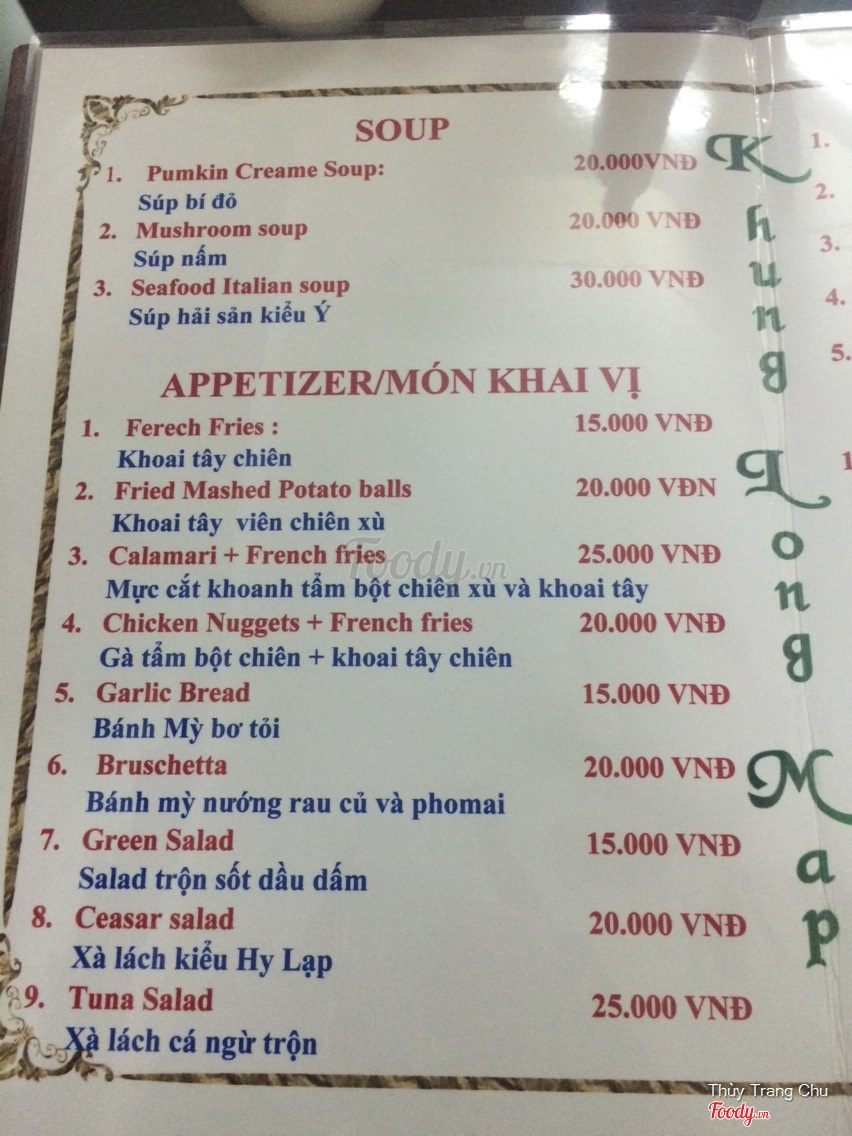 SOUP
1. Pumkin Creame Soup: 20.000VNĐ
Súp bí đỏ
2. Mushroom soup 20.000 VNĐ
Súp nấm
3. Seafood Italian soup 30.000 VNĐ
Súp hải sản kiểu Ý
APPETIZER/MÓN KHAI VỊ
1. Ferech Fries : 15.000 VNĐ
Khoai tây chiên
2. Fried Mashed Potato balls 20.000 VĐN
Khoai tây viên chiên xù
3. Calamari + French fries 25.000 VNĐ
Mực cắt khoanh tẩm bột chiên xù và khoai tây
4. Chicken Nuggets + French fries 20.000 VNĐ
Gà tẩm bột chiên + khoai tây chiên
5. Garlic Bread 15.000 VNĐ
Bánh Mỳ bơ tỏi
6. Bruschetta 20.000 VNĐ
Bánh mỳ nướng rau củ và phomai
7. Green Salad 15.000 VNĐ
Salad trộn sốt dầu dấm
8. Ceasar salad 20.000 VNĐ
Xà lách kiểu Hy Lạp
9. Tuna Salad 25.000 VNĐ
Xà lách cá ngừ trộn
Khung Long Map
1.
2.
3.
4.
5.
1
Foody.vn
Thùy Trang Chu
Foody.vn